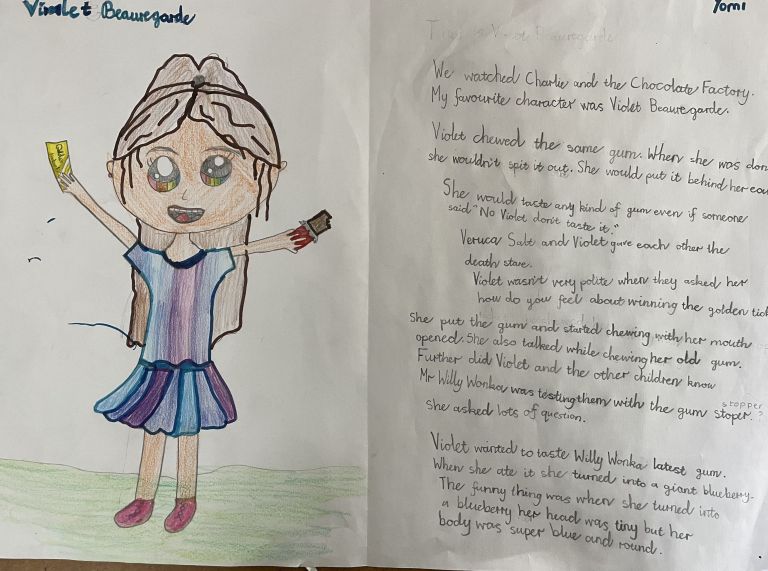 Violet Beauregarde
Yomi
Violet Beauregarde
We watched Charlie and the Chocolate Factory.
My favourite character was Violet Beauregarde.
Violet chewed the same gum. When she was don
she wouldn't spit it out. She would put it behind her ear
She would taste any kind of gum even if someone
said "No Violet don't taste it."
Veruca Salt and Violet gave each other the
death stare.
Violet wasn't very polite when they asked her
how do you feel about winning the golden tick
She put the gum and started chewing with her mouth
opened. She also talked while chewing her old gum.
Further did Violet and the other children know
Mr Willy Wonka was testing them with the gum stoper.?
stopper
She asked lots of question.
Violet wanted to taste Willy Wonka latest gum.
When she ate it she turned into a giant blueberry.
The funny thing was when she turned into
a blueberry her head was tiny but her
body was super blue and round.